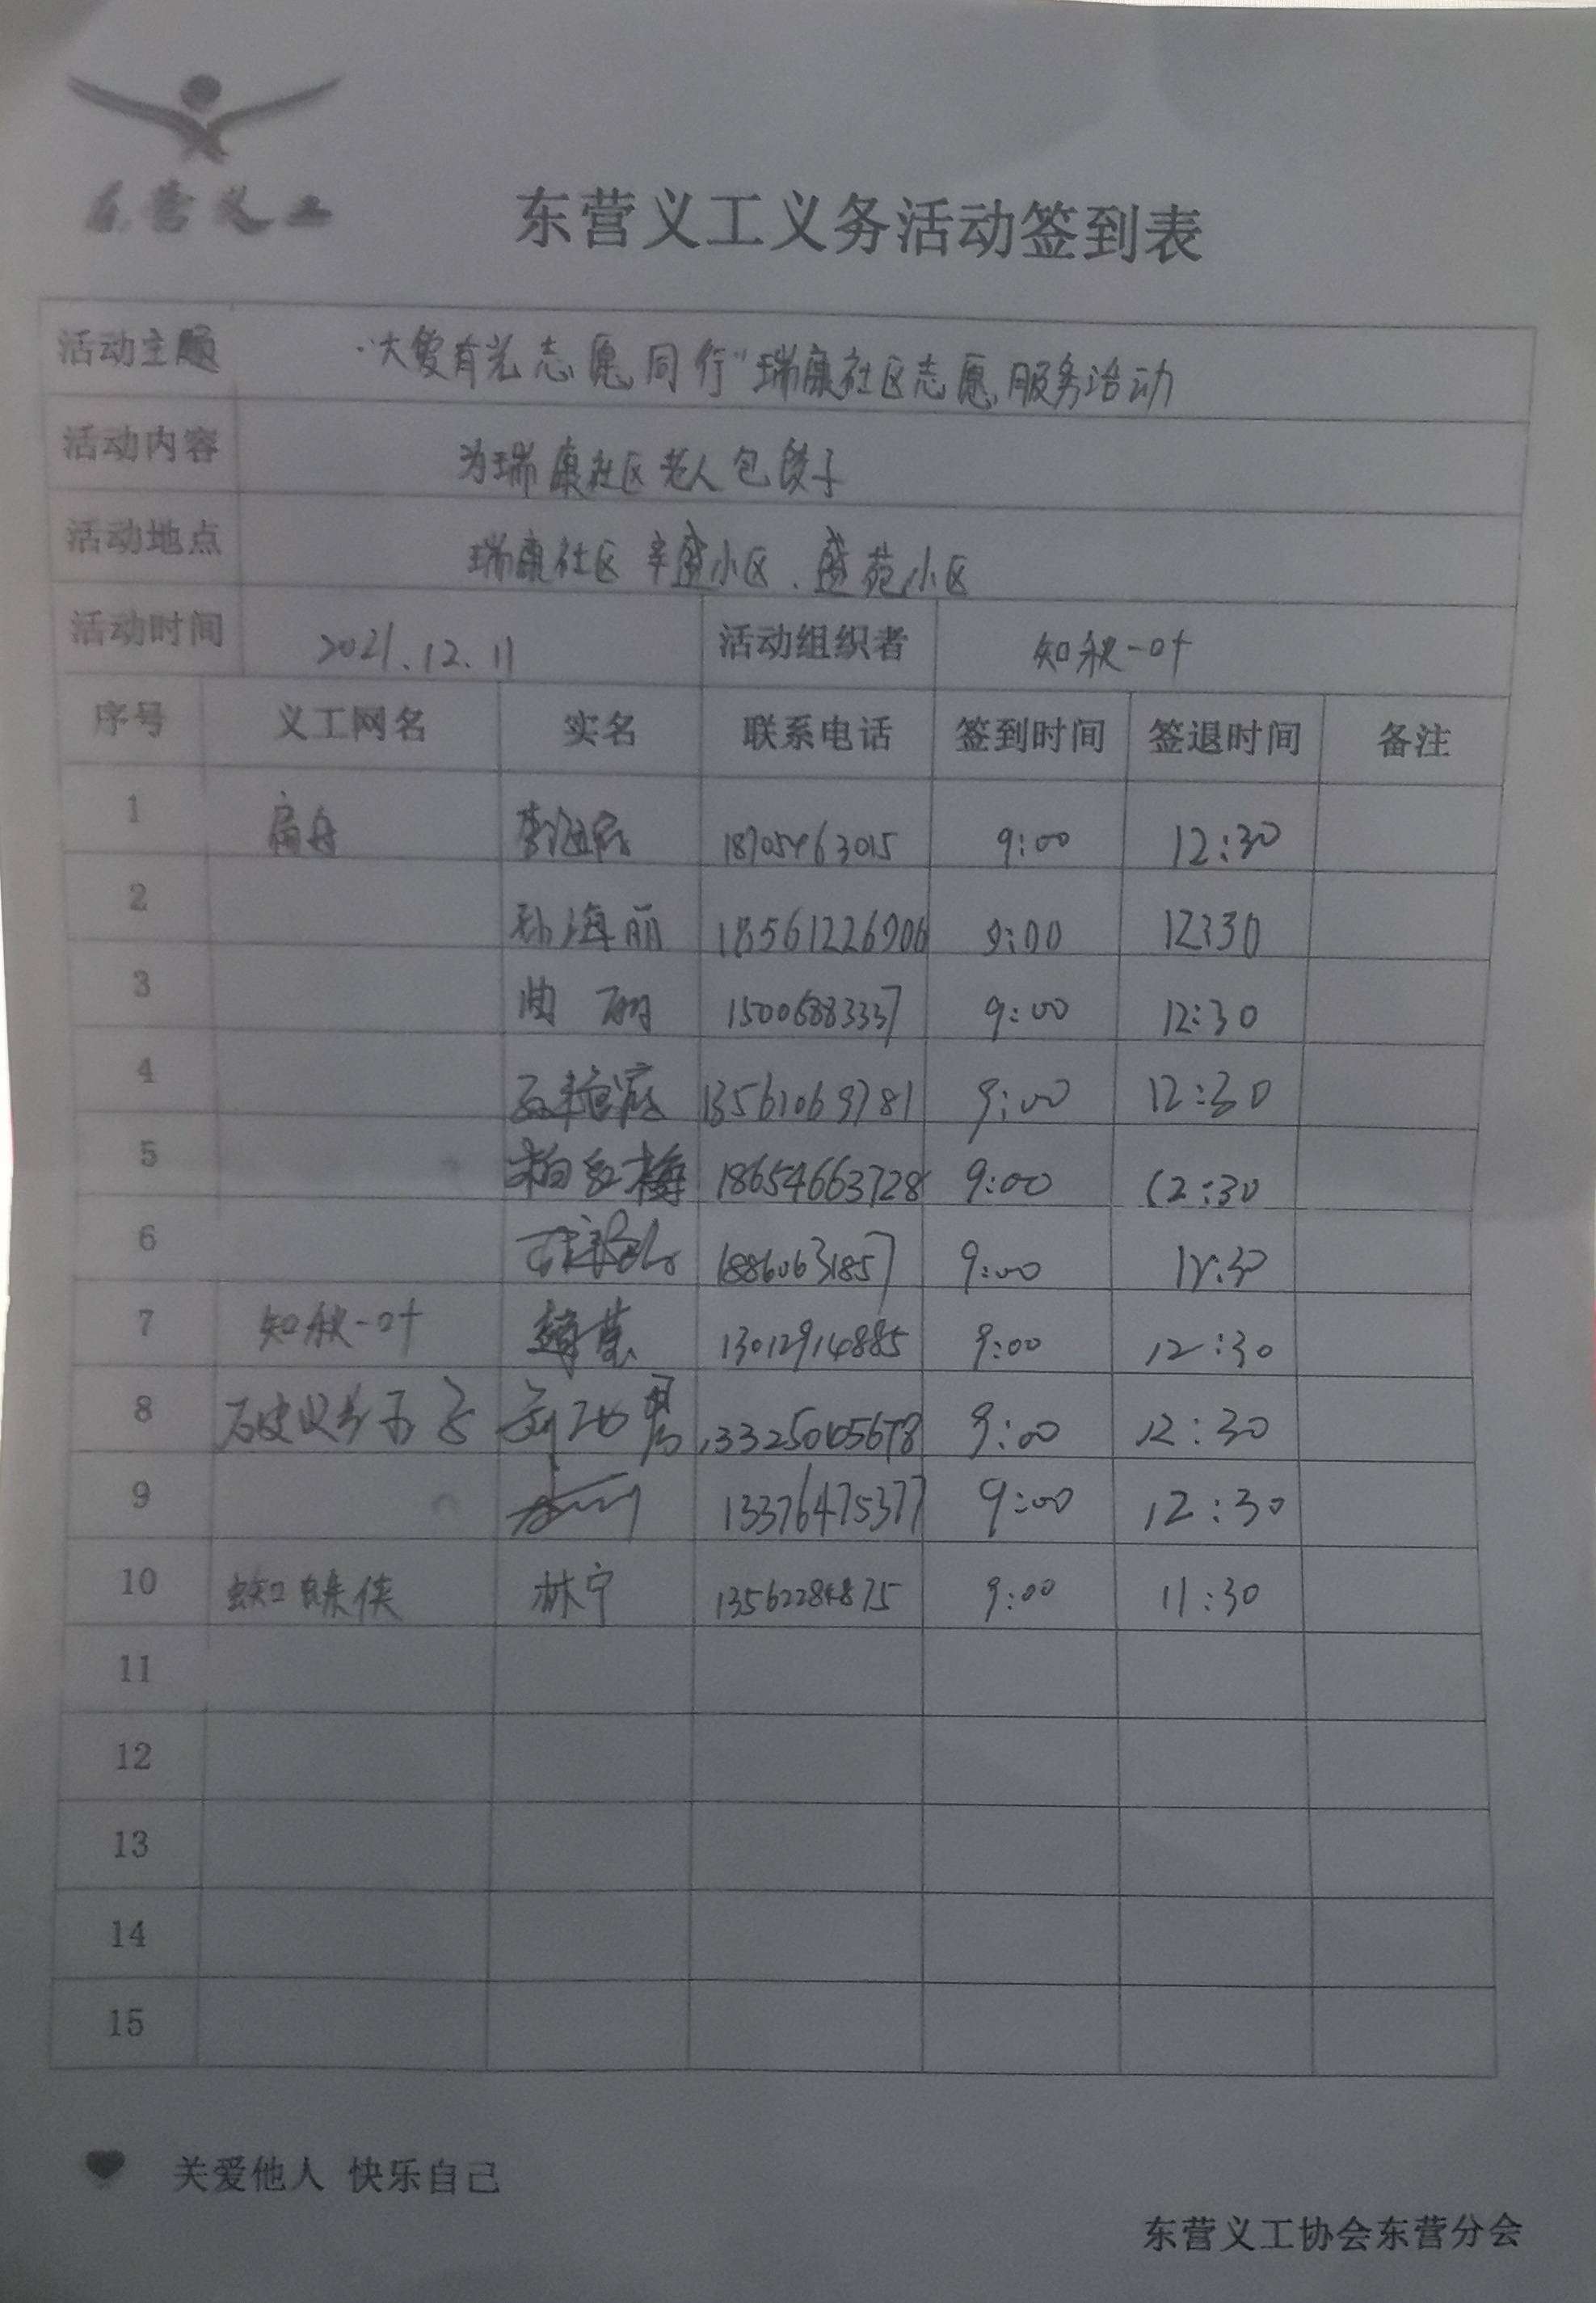 东营义工
东营义工义务活动签到表
活动主题 "大爱有光志愿同行"瑞康社区志愿服务活动
活动内容 为瑞康社区老人包饺子
活动地点 瑞康社区 辛盛小区、盛苑小区
活动时间 2021.12.11 活动组织者 知秋一叶
序号 义工网名 实名 联系电话 签到时间 签退时间 备注
1 扁舟 18705463015 9:00 12:30
2 孙海丽 18561226906 9:00 12:30
3 曲丽 15006883337 9:00 12:30
4 13561069781 9:00 12:30
5 柏红梅 18654663728 9:00 12:30
6 18860631857 9:00 12:30
7 知秋一叶 13012914885 9:00 12:30
8 9:00 12:30
9 13376475377 9:00 12:30
10 蜘蛛侠 林宁 13562284875 9:00 11:30
11
12
13
14
15
关爱他人 快乐自己
东营义工协会东营分会